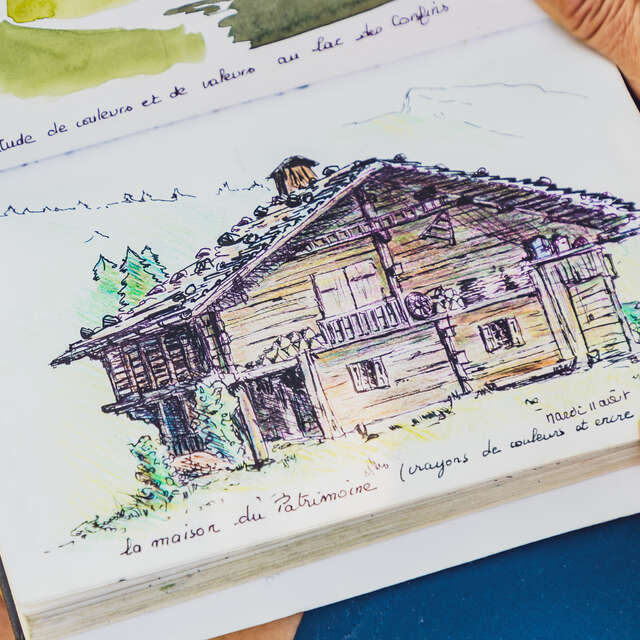 tude de couleurs et de valeurs au lac des Confins
mardi 11 août
la maison du Patrimoine (crayons de couleurs et encre